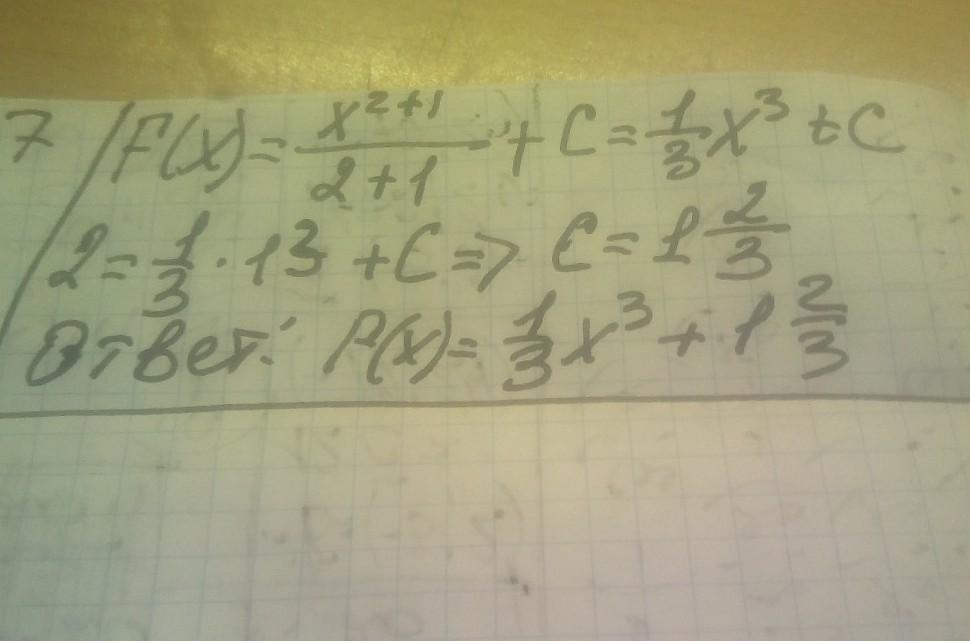 7/ F(x) = \frac{x^{2+1}}{2+1} + C = \frac{1}{3}x^3 + C
2 = \frac{1}{3} · 1^3 + C => C = 1\frac{2}{3}
Ответ: F(x) = \frac{1}{3}x^3 + 1\frac{2}{3}